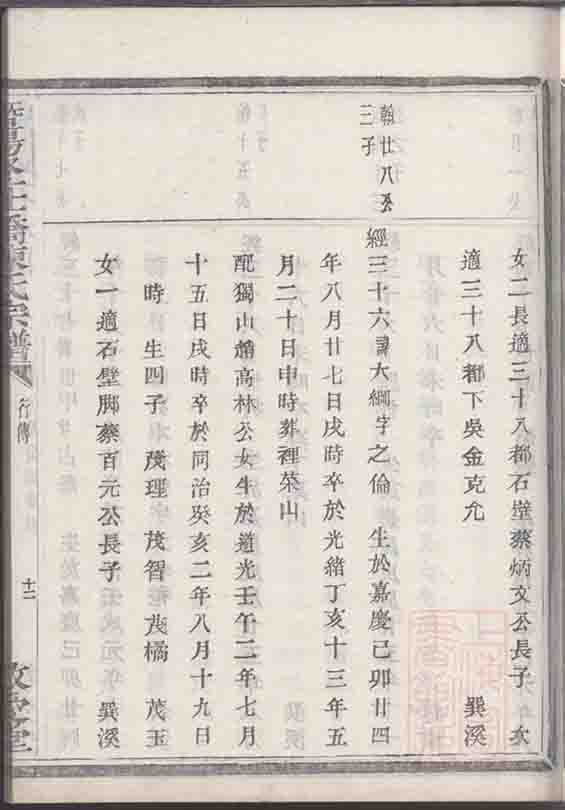 女二長適三十八都石壁蔡炳文公長子 次
適三十八都下吳金克允 巽溪
翰廿八公
三子
經三十六諱大綱字之倫 生於嘉慶己卯廿四
年八月廿七日戌時卒於光緒丁亥十三年五
月二十日申時葬裡菜山
配獨山趙高林公女生於道光壬午二年七月
十五日戌時卒於同治癸亥二年八月十九日
時 生四子 茂理 茂智 茂橘 茂玉
女一適石壁脚蔡百元公長子 巽溪
宗譜
行傳
十二